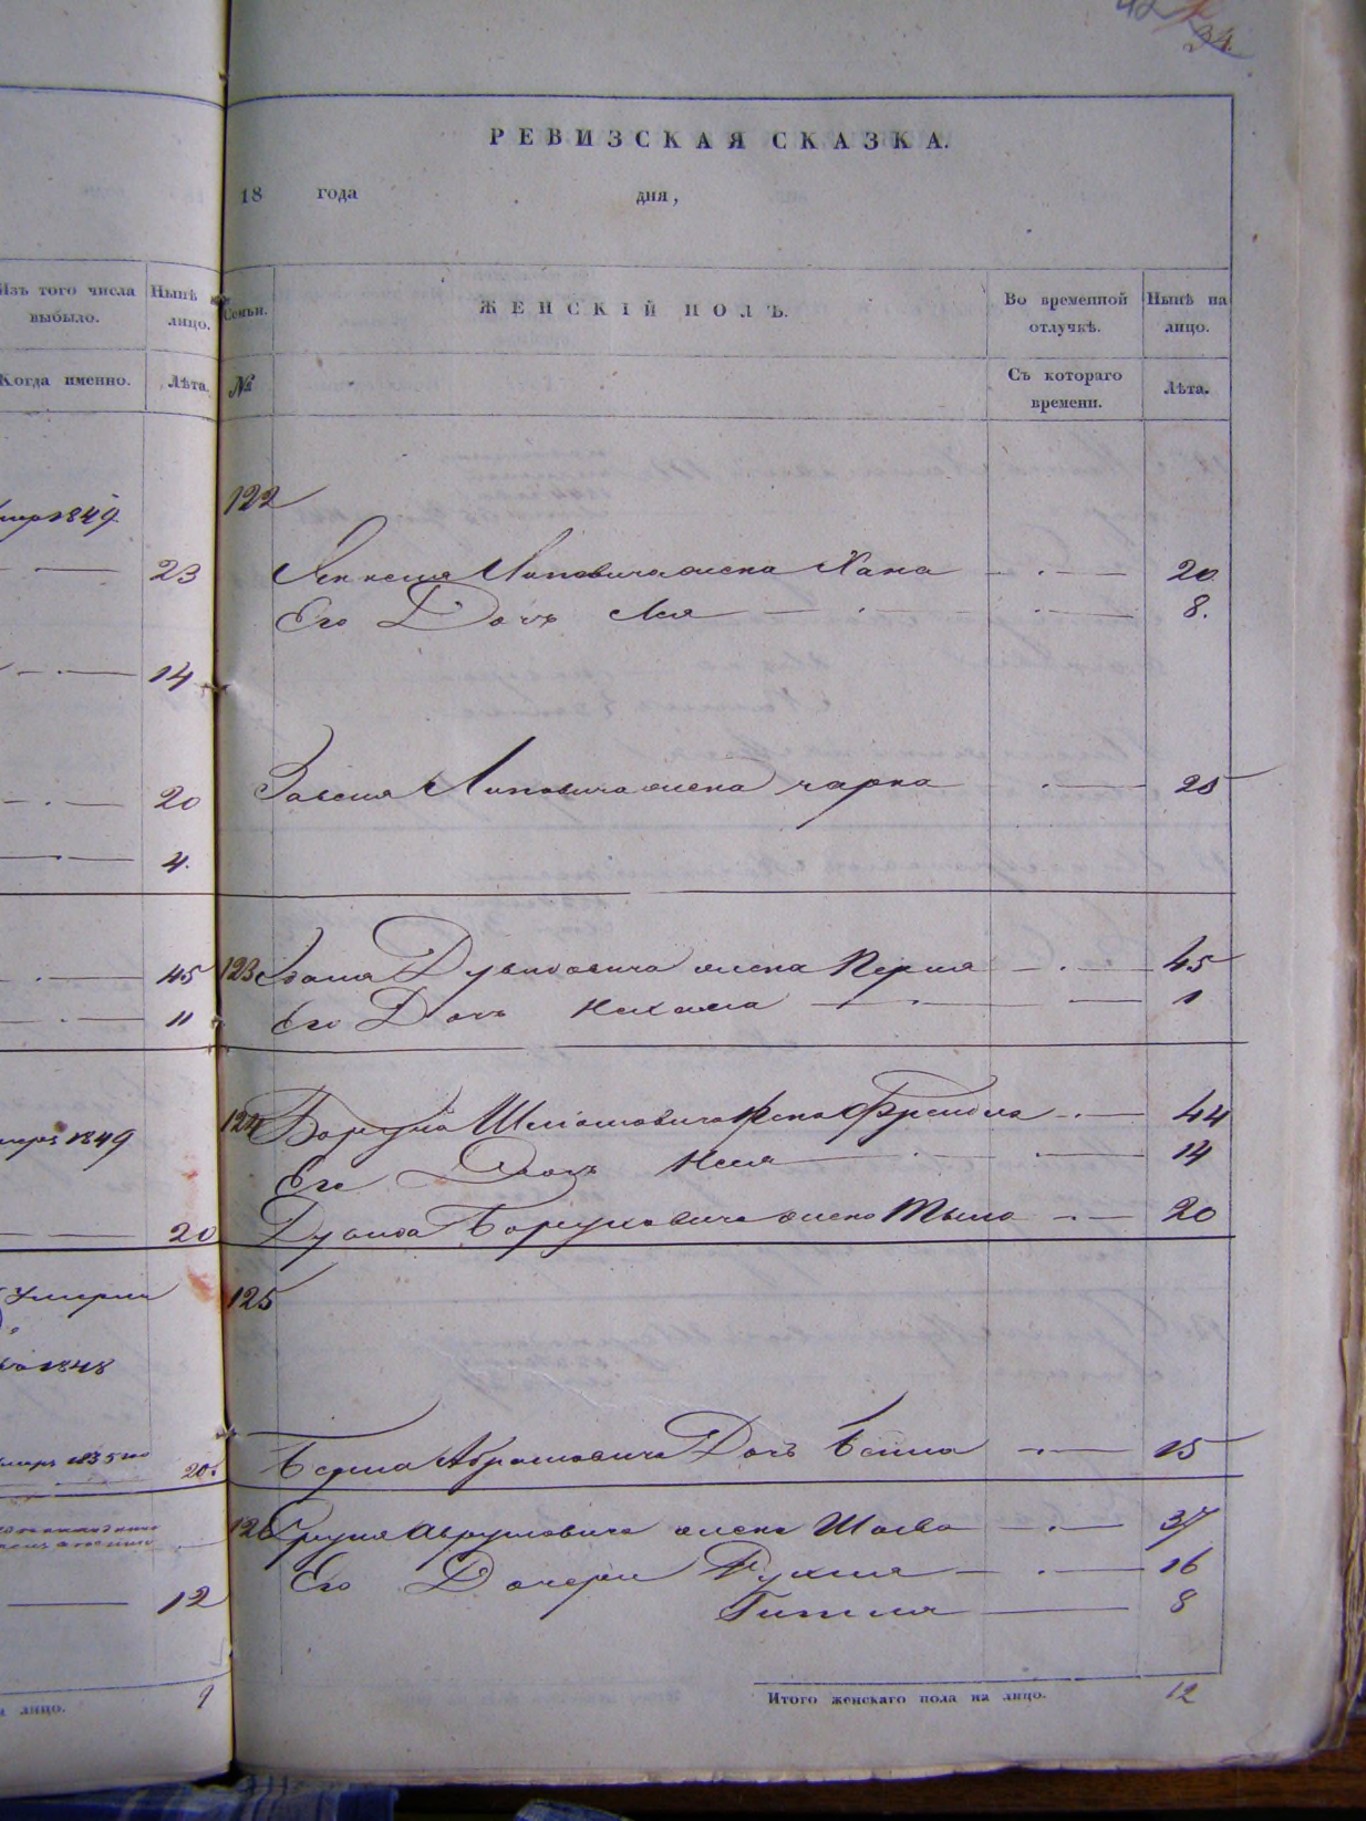 34.
РЕВИЗСКАЯ СКАЗКА.
18 года дня,
Изъ того числа выбыло.
Нынѣ лицо.
Семьи.
ЖЕНСКІЙ ПОЛЪ.
Во временной отлучкѣ.
Нынѣ на лицо.
Когда именно.
Лѣта.
№
Съ котораго времени.
Лѣта.
122
1849
23 Липовича жена Хана 20
Его Дочь Лея 8.
14
20 Липовича жена чарна 25
4.
45 123 Дувидовича жена Перля 45
11 Его Дочь Нехама 1
1849 124 Боруха Шліомовича жена Фрейдла 44
Его Дочь Неля 14
20 Дувида Боруховича жена Тыла 20
Умерли 125
1848
1835 20. Абрамовича Дочь Бейла 15
126 Аврумовича жена Шева 37
Его Дочери Рухля 16
12 Гитля 8
лицо. 9 Итого женскаго пола на лицо. 12